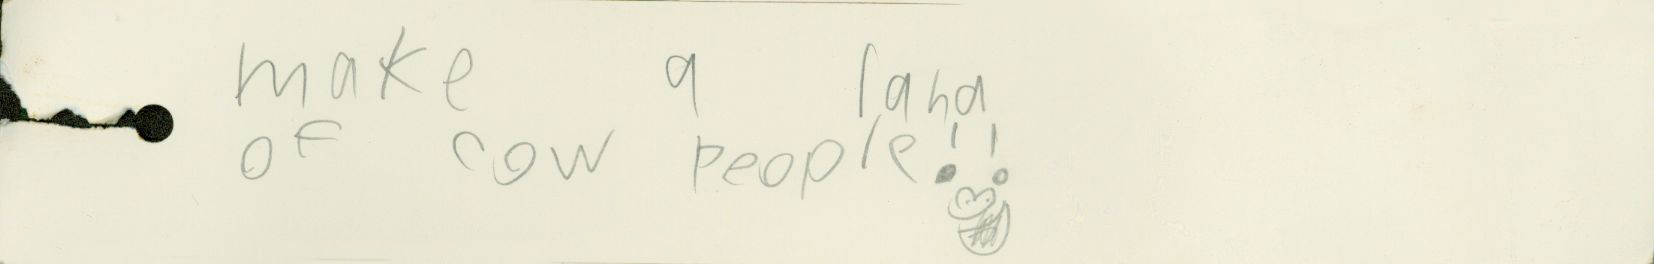 make a land
of cow people!!